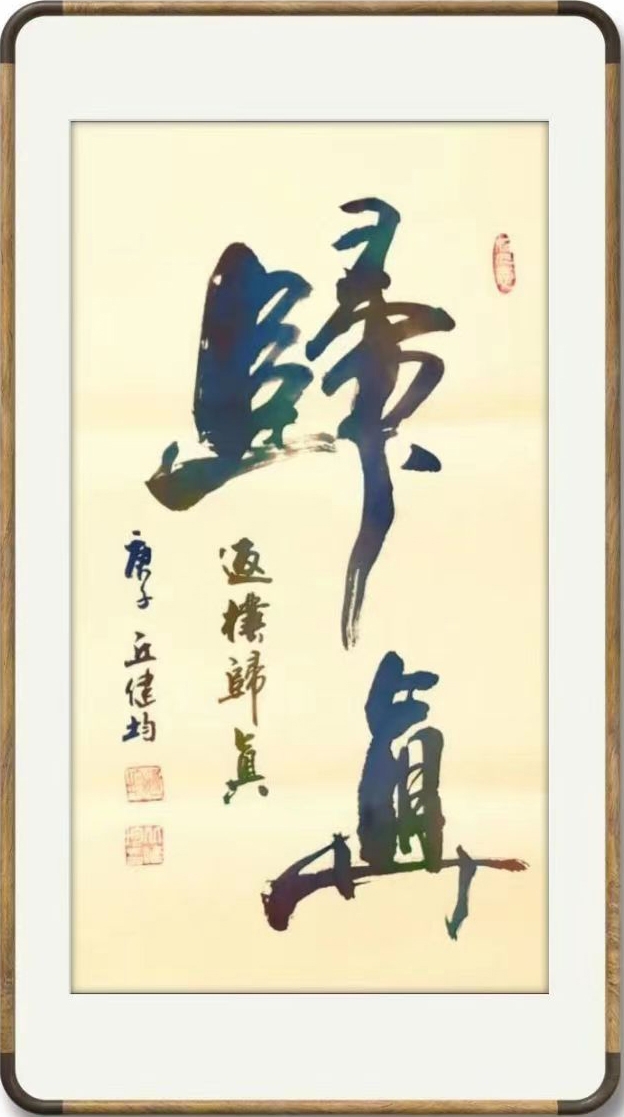 歸真
返樸歸真
庚子 丘健均